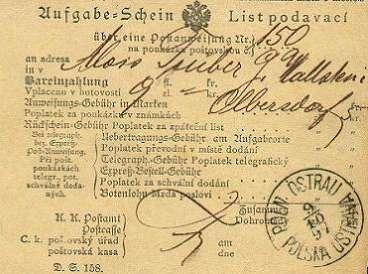 Aufgabe-Schein List podavací
über eine Postanweisung Nr. 150
na poukázku poštovskou č.
an adresa
in v
Olbersdorf
Bareinzahlung fl. kr.
Vplaceno v hotovosti 9 zl. kr.
Anweisungs-Gebühr in Marken
Poplatek za poukázku v známkách
Rückschein-Gebühr Poplatek za zpáteční list
Bei telegraph. bez. Expreß-Post-Anweisung.
Při pošt. poukázkách telegr., pos. schválně dodaných.
Uebertragungs-Gebühr am Aufgabeorte
Poplatek převodní v místě dodání
Telegraph.-Gebühr Poplatek telegrafický
Expreß-Bestell-Gebühr
Poplatek za schvální dodání
Botenlohn Mzda poslovi
Zusammen
Dohromady
K. K. Postamt
Postcasse
C. k. poštovský úřad
poštovská kasa
am
dne
D. S. 158.
POLN. OSTRAU
POLSKÁ OSTRAVA